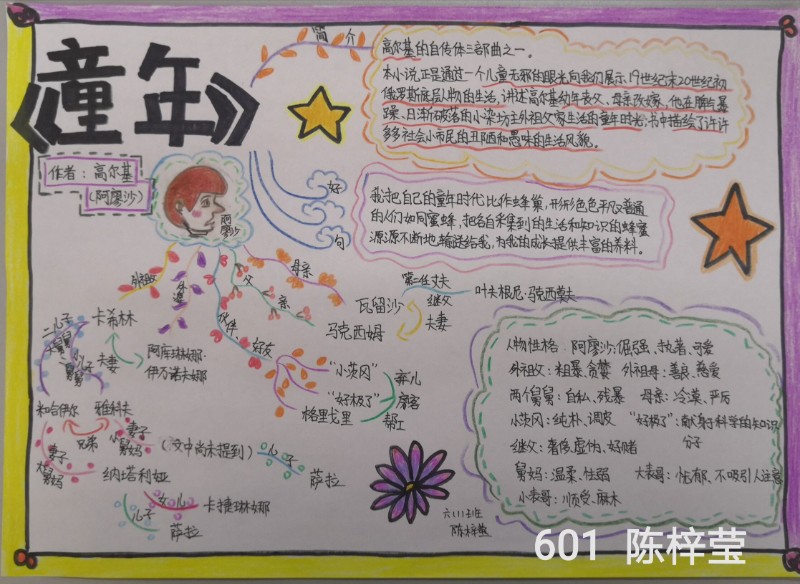 《童年》
作者：高尔基
（阿廖沙）
阿廖沙
简介
高尔基的自传体三部曲之一。
本小说正是通过一个儿童无邪的眼光向我们展示19世纪末20世纪初
俄罗斯底层人物的生活，讲述高尔基幼年丧父、母亲改嫁、他在脾气暴
躁、日渐破落的小染坊主外祖父家生活的童年时光，书中描绘了许许
多多社会小市民的丑陋和愚昧的生活风貌。
好
句
我把自己的童年时代比作蜂巢，形形色色平凡又普通
的人们如同蜜蜂，把各自采集到的生活和知识的蜂蜜
源源不断地输送给我，为我的成长提供丰富的养料。
外祖父
外婆
父亲
母亲
伙伴
好友
瓦留沙
马克西姆
第一任丈夫
继父
夫妻
叶夫根尼·马克西莫夫
卡希林
夫妻
阿库琳娜·
伊万诺夫娜
二儿子
大舅舅
小儿子
小舅舅
米哈伊尔
雅科夫
兄弟
妻子
大舅妈
妻子
小舅妈
（文中尚未提到）
儿子
萨拉
纳塔利亚
女儿
卡捷琳娜
儿子
萨拉
“小茨冈”
弃儿
“好极了”
房客
格里戈里
帮工
人物性格：阿廖沙：倔强、执着、可爱
外祖父：粗暴、贪婪 外祖母：善良、慈爱
两个舅舅：自私、残暴 母亲：冷漠、严厉
小茨冈：纯朴、调皮 “好极了”：献身于科学的知识
分子
继父：奢侈、虚伪、好赌
舅妈：温柔、怯弱 大表哥：忧郁、不吸引人注意
小表哥：顺受、麻木
六（1）班
陈梓莹
601 陈梓莹